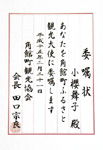 委嘱状
小櫻舞子 殿
あなたを角館町ふるさと
観光大使に委嘱します
平成十五年三月三十一日
角館町観光協会
会長 田口宗良